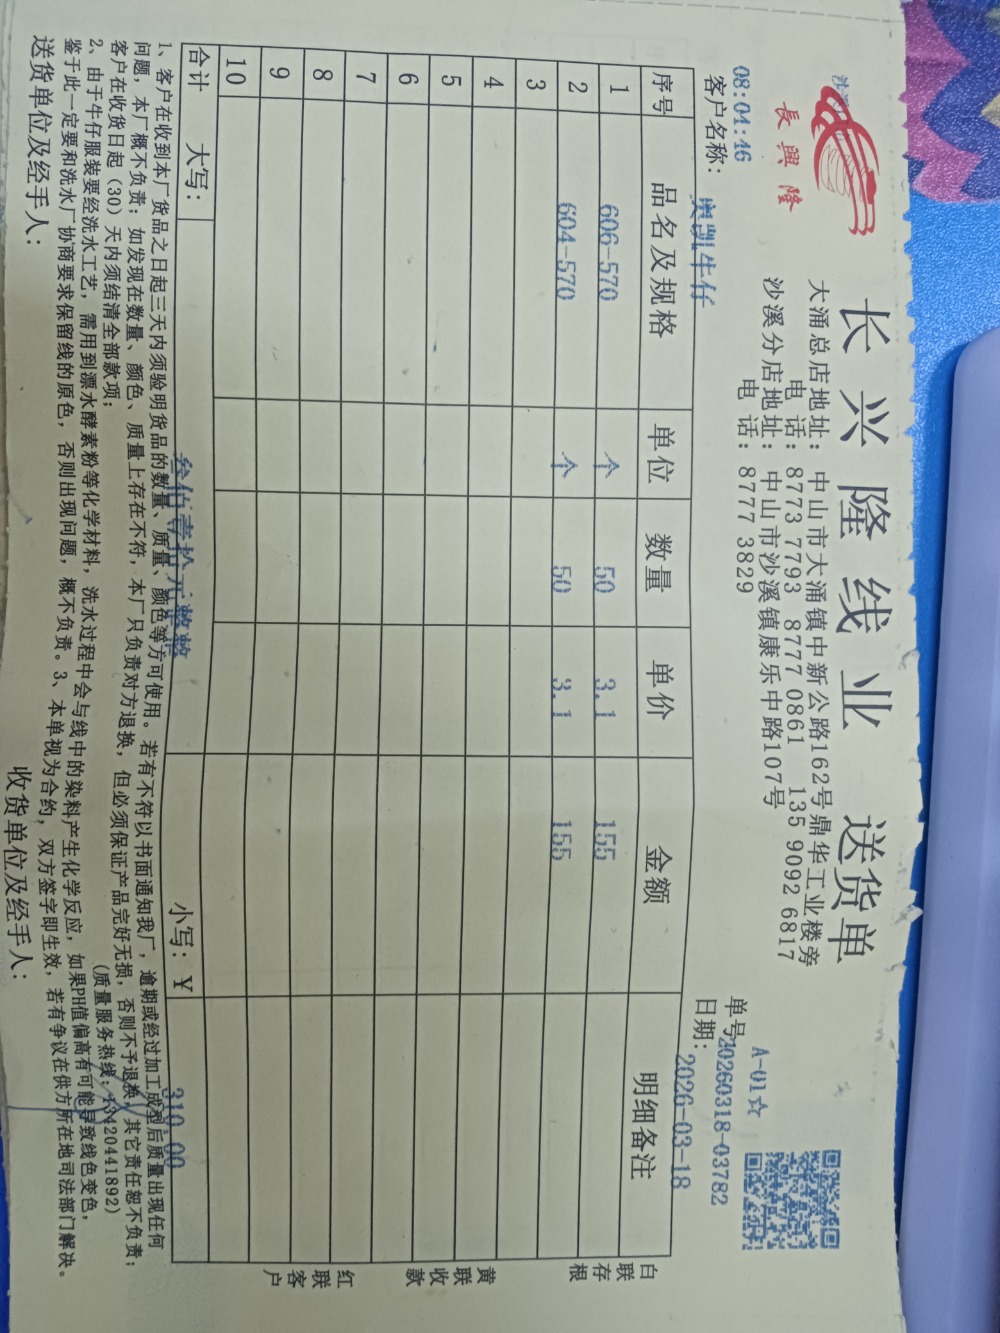 长兴隆线业 送货单
長興隆
大涌总店地址：中山市大涌镇中新公路162号鼎华工业楼旁
电 话：8773 7793 8777 0861 135 9092 6817
沙溪分店地址：中山市沙溪镇康乐中路107号
电 话：8777 3829
A-01☆
08:04:46
单号20260318-03782
客户名称：奥凯牛仔
日期：2026-03-18
序号 品名及规格 单位 数量 单价 金额 明细备注
1 606-570 个 50 3.1 155
2 604-570 个 50 3.1 155
3
4
5
6
7
8
9
10
合计 大写：叁佰壹拾元整 小写：¥ 310.00
白联存根
黄联收款
红联客户
1、客户在收到本厂货品之日起三天内须验明货品的数量、质量、颜色等方可使用。若有不符以书面通知我厂，逾期或经过加工成型后质量出现任何
问题，本厂概不负责；如发现在数量、颜色、质量上存在不符，本厂只负责对方退换，但必须保证产品完好无损，否则不予退换，其它责任恕不负责；
客户在收货日起（30）天内须结清全部款项；
(质量服务热线：13420441892)
2、由于牛仔服装要经洗水工艺，需用到漂水酵素粉等化学材料，洗水过程中会与线中的染料产生化学反应，如果PH值偏高有可能导致线色变色，
鉴于此一定要和洗水厂协商要求保留线的原色，否则出现问题，概不负责。3、本单视为合约，双方签字即生效，若有争议在供方所在地司法部门解决。
送货单位及经手人：
收货单位及经手人：